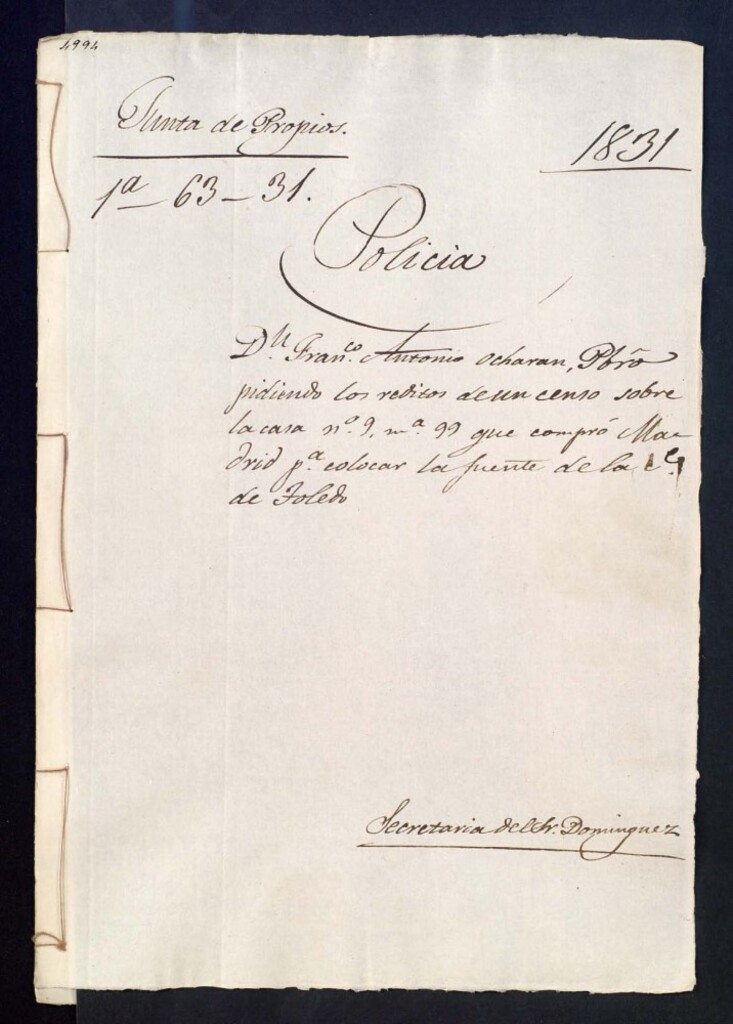 4994
Junta de Propios.
1831
1ª 63 - 31.
Policia
Dⁿ. Franᶜᵒ. Antonio Ocharan, Pbrõ
pidiendo los reditos de un censo sobre
la casa nº. 9, mª. 99 que compró Ma-
drid pª. colocar la fuente de la cᵉ.
de Toledo
Secretaria del Sr. Dominguez